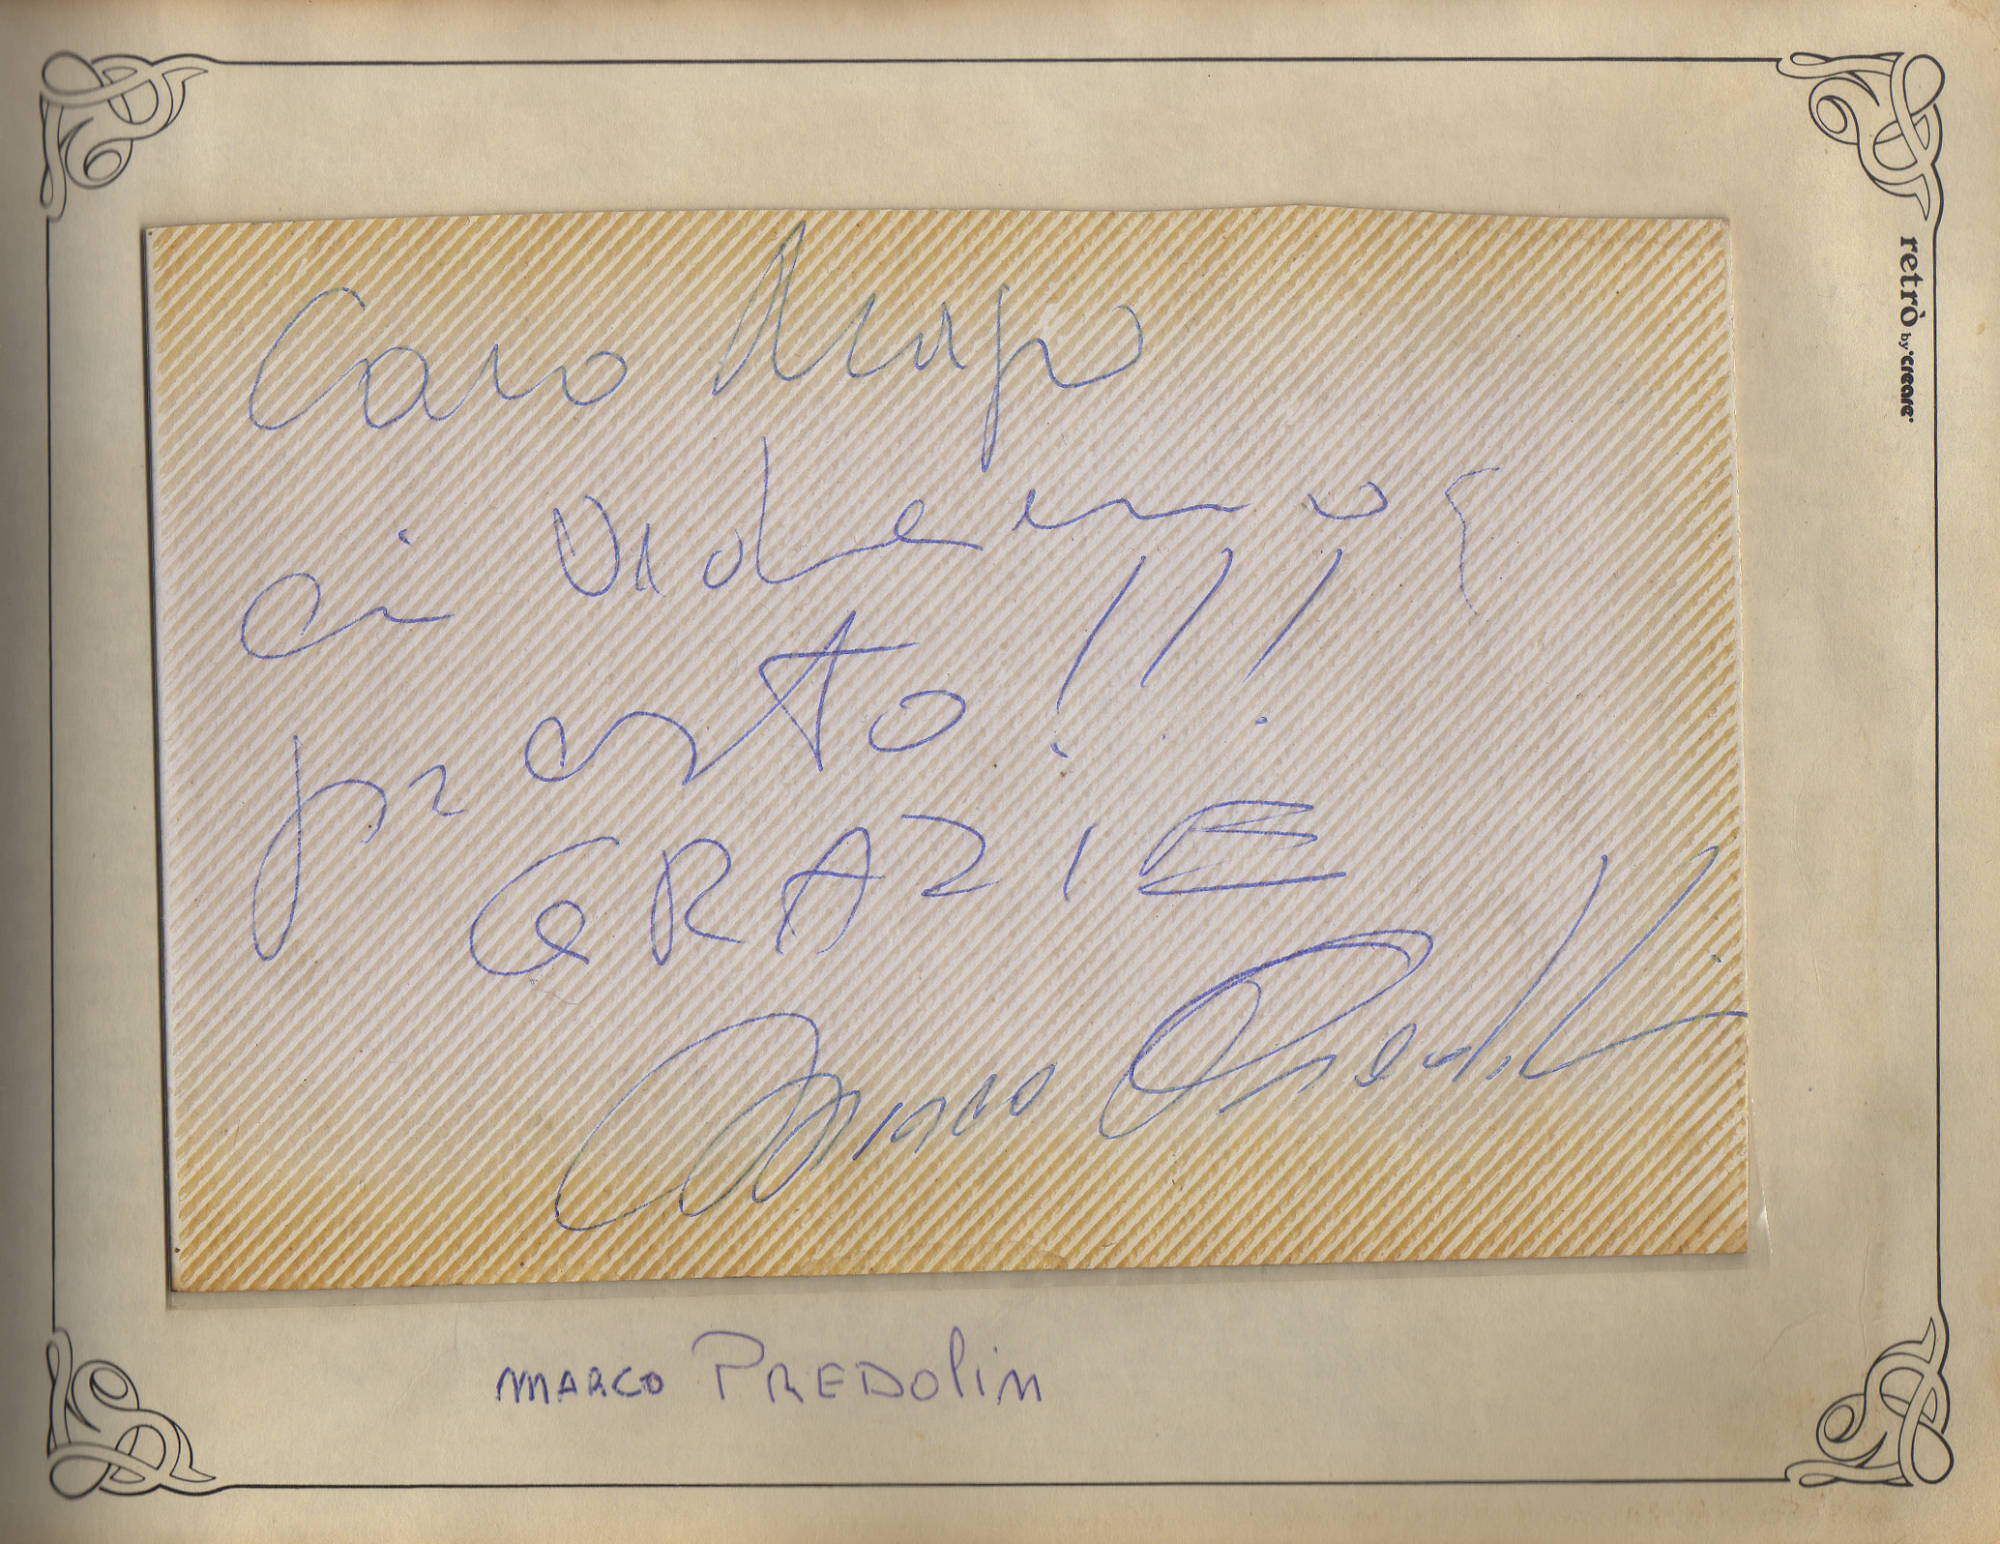 Caro
ci vediamo
presto!!!
GRAZIE
Marco Predolin
MARCO PREDOLIN
retrò by creare